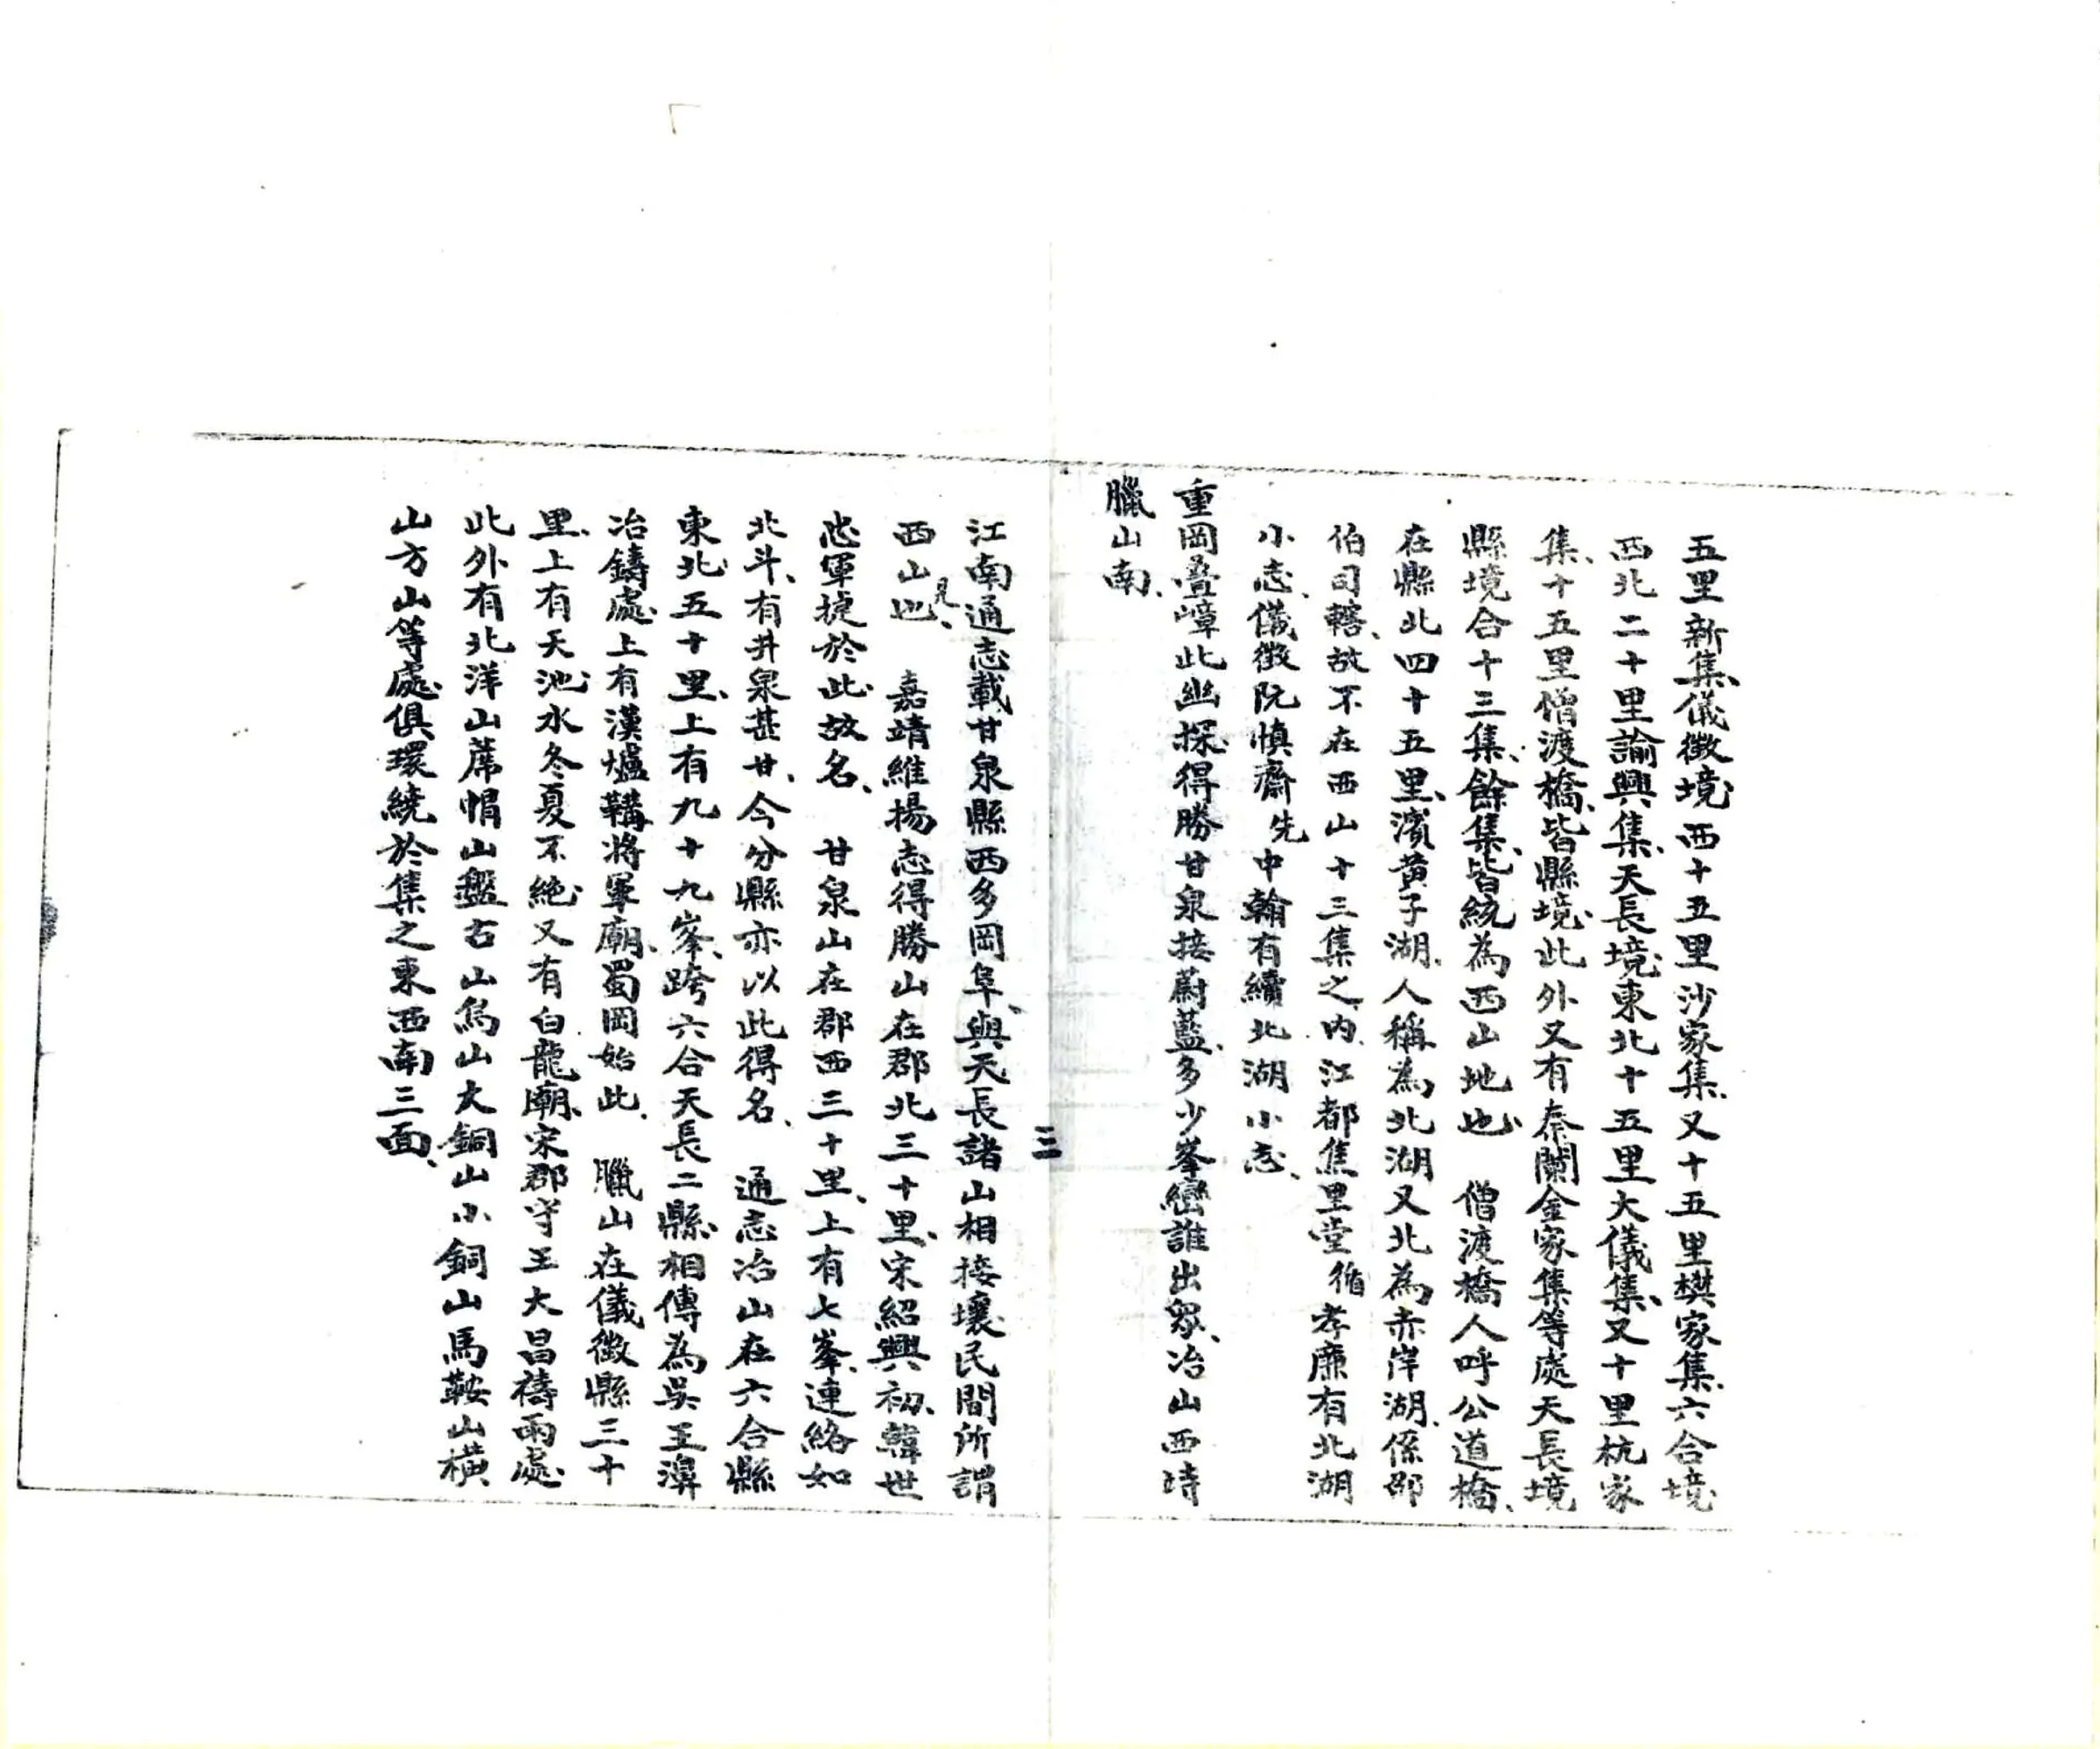 五里新集、儀徴境、西十五里沙家集、又十五里樊家集、六合境、
西北二十里諭興集、天長境、東北十五里大儀集、又十里杭家
集、十五里僧渡橋、皆縣境、此外又有秦闌金家集等處天長境
縣境合十三集、餘集皆統為西山地也、　僧渡橋人呼公道橋、
在縣北四十五里、濱黄子湖、人稱為北湖又北為赤岸湖、係邵
伯司轄、故不在西山十三集之内、江都焦里堂循孝廉有北湖
小志、儀徴阮慎齋先中翰有續北湖小志、
重岡疊嶂此幽探、得勝甘泉接蔚藍、多少峯巒誰出衆、冶山西峙
臘山南、
三
江南通志載甘泉縣西多岡阜、與天長諸山相接壤民間所謂
西山也、　見嘉靖維揚志得勝山在郡北三十里、宋紹興初、韓世
忠軍捷於此、故名、　甘泉山在郡西三十里、上有七峯、連絡如
北斗、有井泉甚甘、今分縣亦以此得名、　通志冶山在六合縣
東北五十里、上有九十九峯、跨六合天長二縣、相傳為吳王濞
冶鑄處、上有漢爐韝將軍廟、蜀岡始此、　臘山在儀徴縣三十
里、上有天池、水冬夏不絶、又有白龍廟、宋郡守王大昌禱雨處、
此外有北洋山蓆帽山盤古山烏山大銅山小銅山馬鞍山横
山方山等處、俱環繞於集之東西南三面、